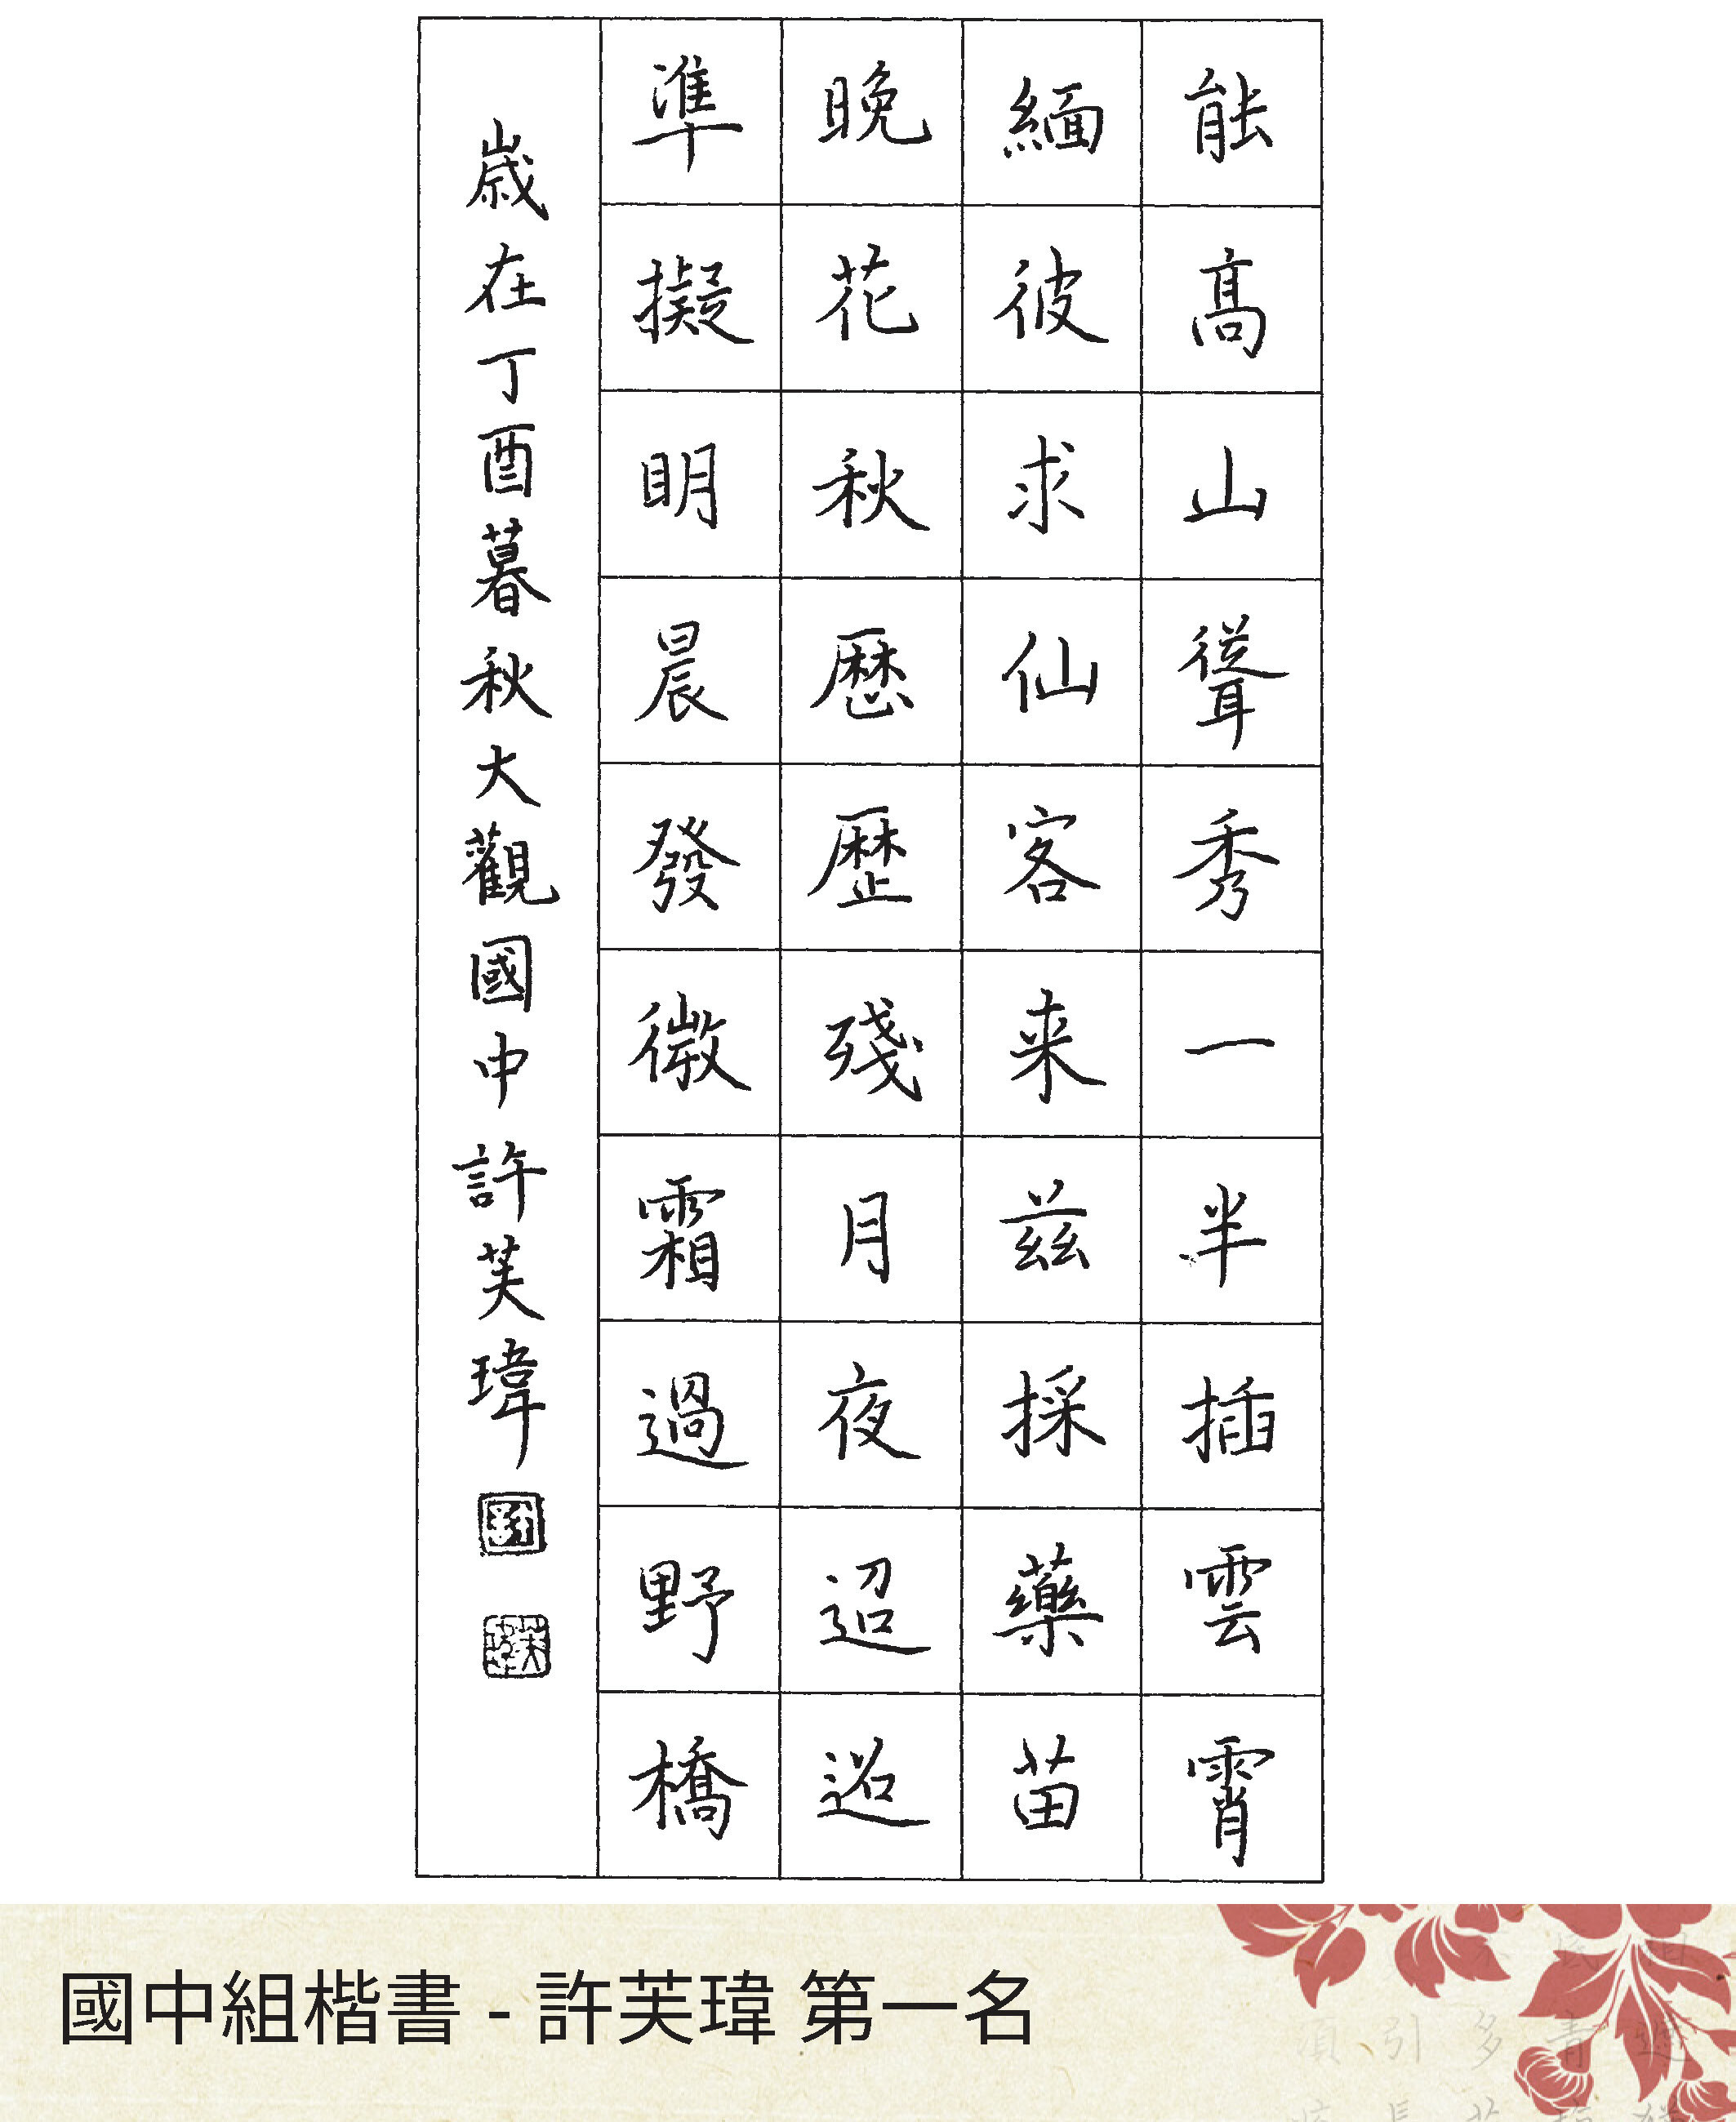 能高山聳秀一半插雲霄
緬彼求仙客来茲採藥苗
晚花秋歷歷殘月夜迢迢
準擬明晨發微霜過野橋
歲在丁酉暮秋大觀國中許芙瑋
國中組楷書 - 許芙瑋 第一名